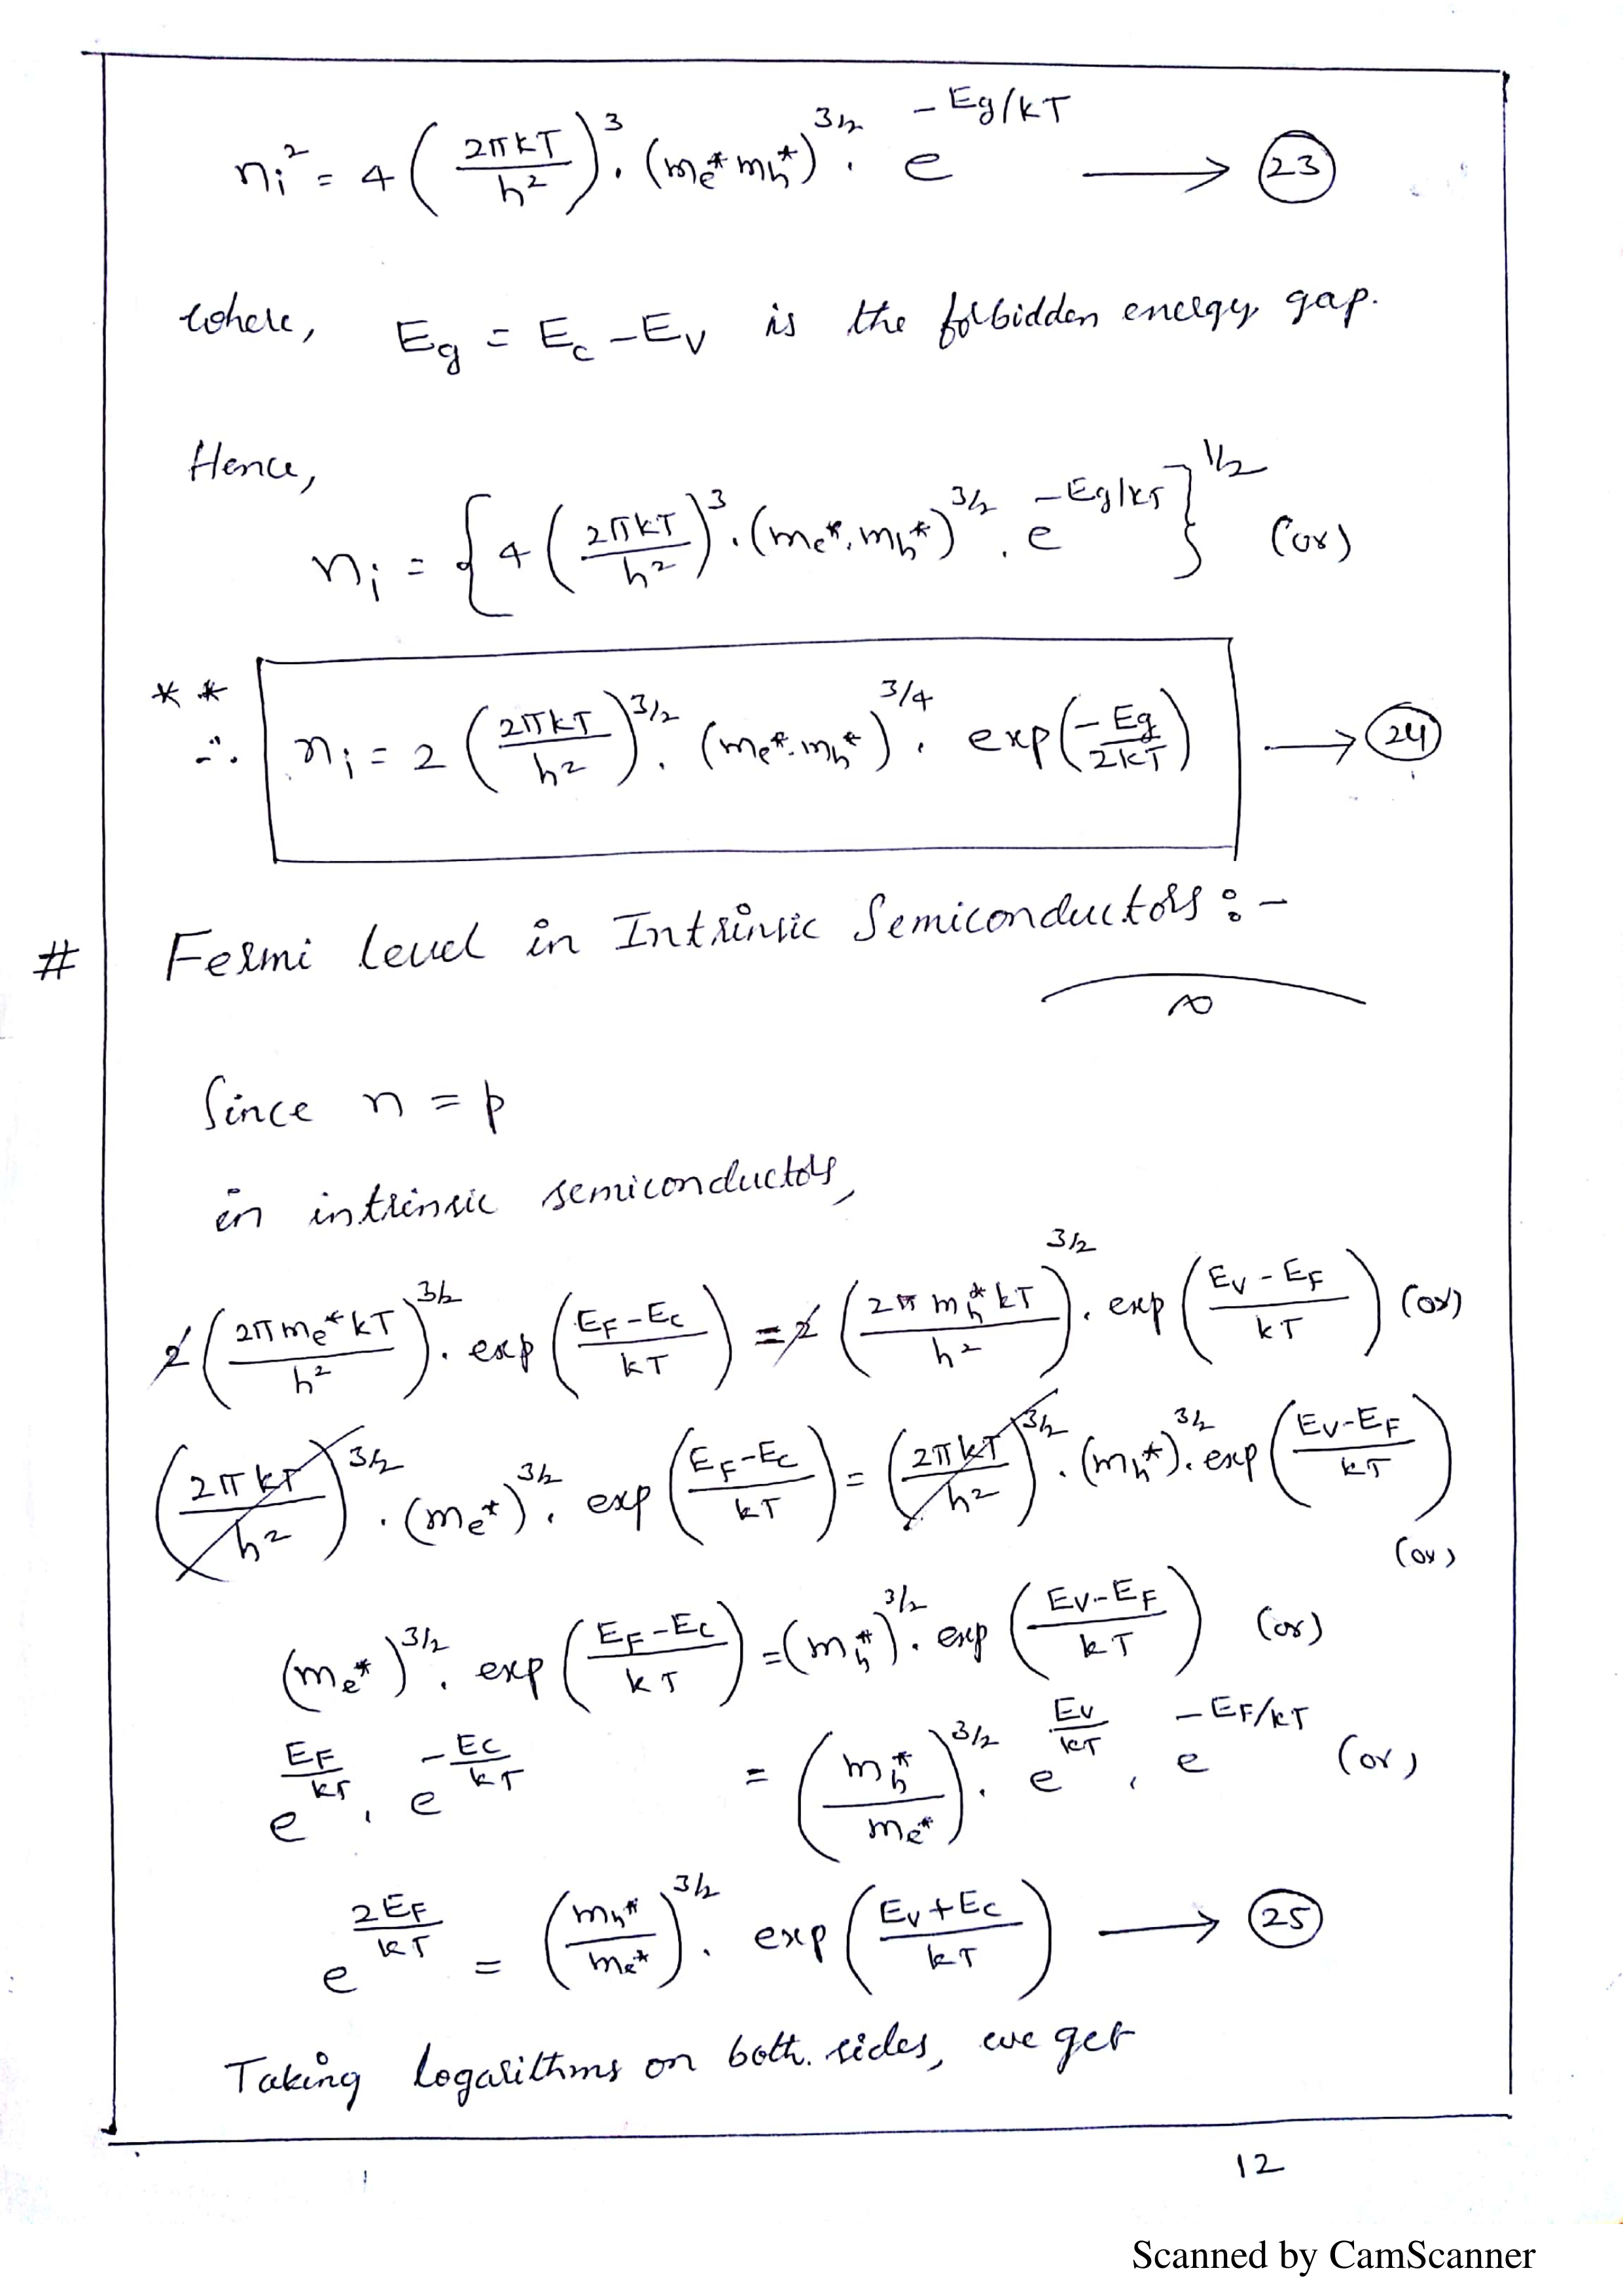 nᵢ² = 4 (2πkT / h²)³ . (mₑ* mₕ*)^3/2 . e^-Eg/kT → (23)
where, Eg = Ec - Ev is the forbidden energy gap.
Hence,
nᵢ = {4 (2πkT / h²)³ . (mₑ* . mₕ*)^3/2 . e^-Eg/kT}^1/2 (or)
**
∴ nᵢ = 2 (2πkT / h²)^3/2 . (mₑ* . mₕ*)^3/4 . exp(-Eg / 2kT) → (24)
# Fermi level in Intrinsic Semiconductors :-
Since n = p
in intrinsic semiconductors,
2 (2πmₑ*kT / h²)^3/2 . exp(EF - Ec / kT) = 2 (2π mₕ* kT / h²)^3/2 . exp(Ev - EF / kT) (or)
(2πkT / h²)^3/2 . (mₑ*)^3/2 . exp(EF - Ec / kT) = (2πkT / h²)^3/2 . (mₕ*)^3/2 . exp(Ev - EF / kT)
(or)
(mₑ*)^3/2 . exp(EF - Ec / kT) = (mₕ*)^3/2 . exp(Ev - EF / kT) (or)
e^EF/kT . e^-Ec/kT = (mₕ* / mₑ*)^3/2 . e^Ev/kT . e^-EF/kT (or)
e^2EF/kT = (mₕ* / mₑ*)^3/2 . exp(Ev + Ec / kT) → (25)
Taking logarithms on both sides, we get
12
Scanned by CamScanner